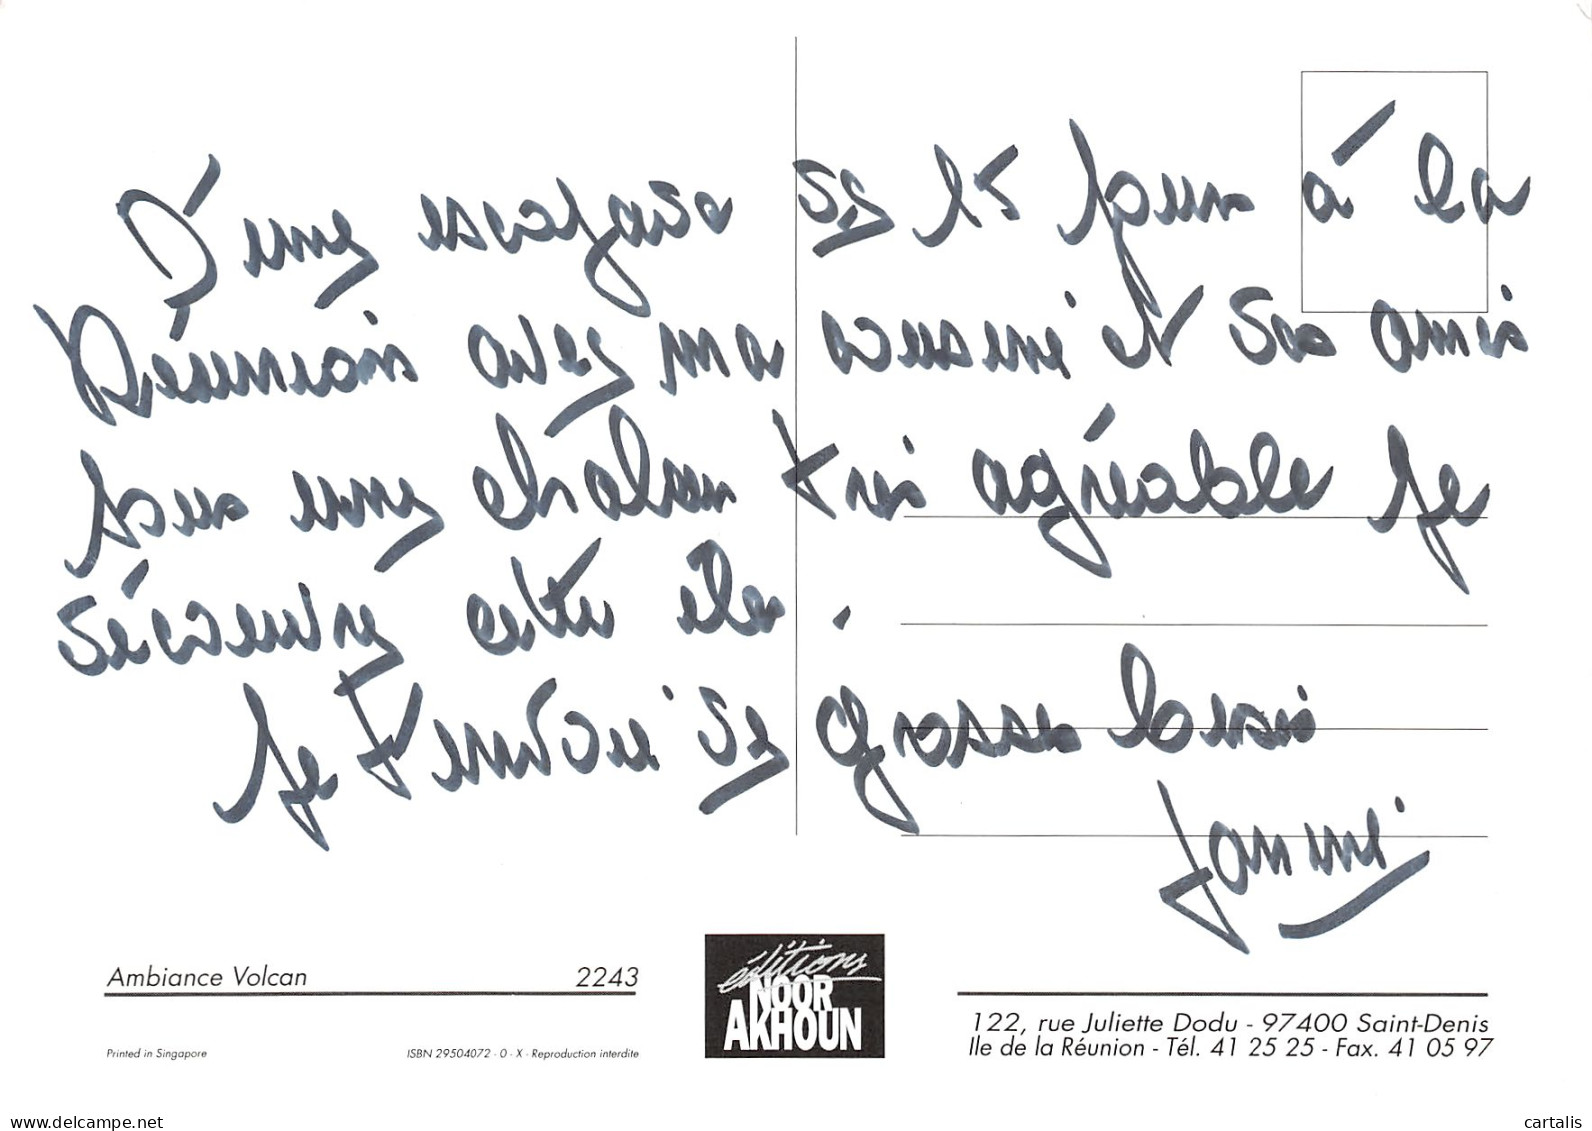 D'une escapade de 15 jours à la
Réunion avec ma cousine et des amis
sous une chaleur très agréable je
découvre cette île.
Je t'envoie de grosses bises
Jannie
Ambiance Volcan 2243
Printed in Singapore ISBN 29504072 - 0 - X - Reproduction interdite
éditions
NOOR
AKHOUN
122, rue Juliette Dodu - 97400 Saint-Denis
Ile de la Réunion - Tél. 41 25 25 - Fax. 41 05 97
www.delcampe.net
cartalis